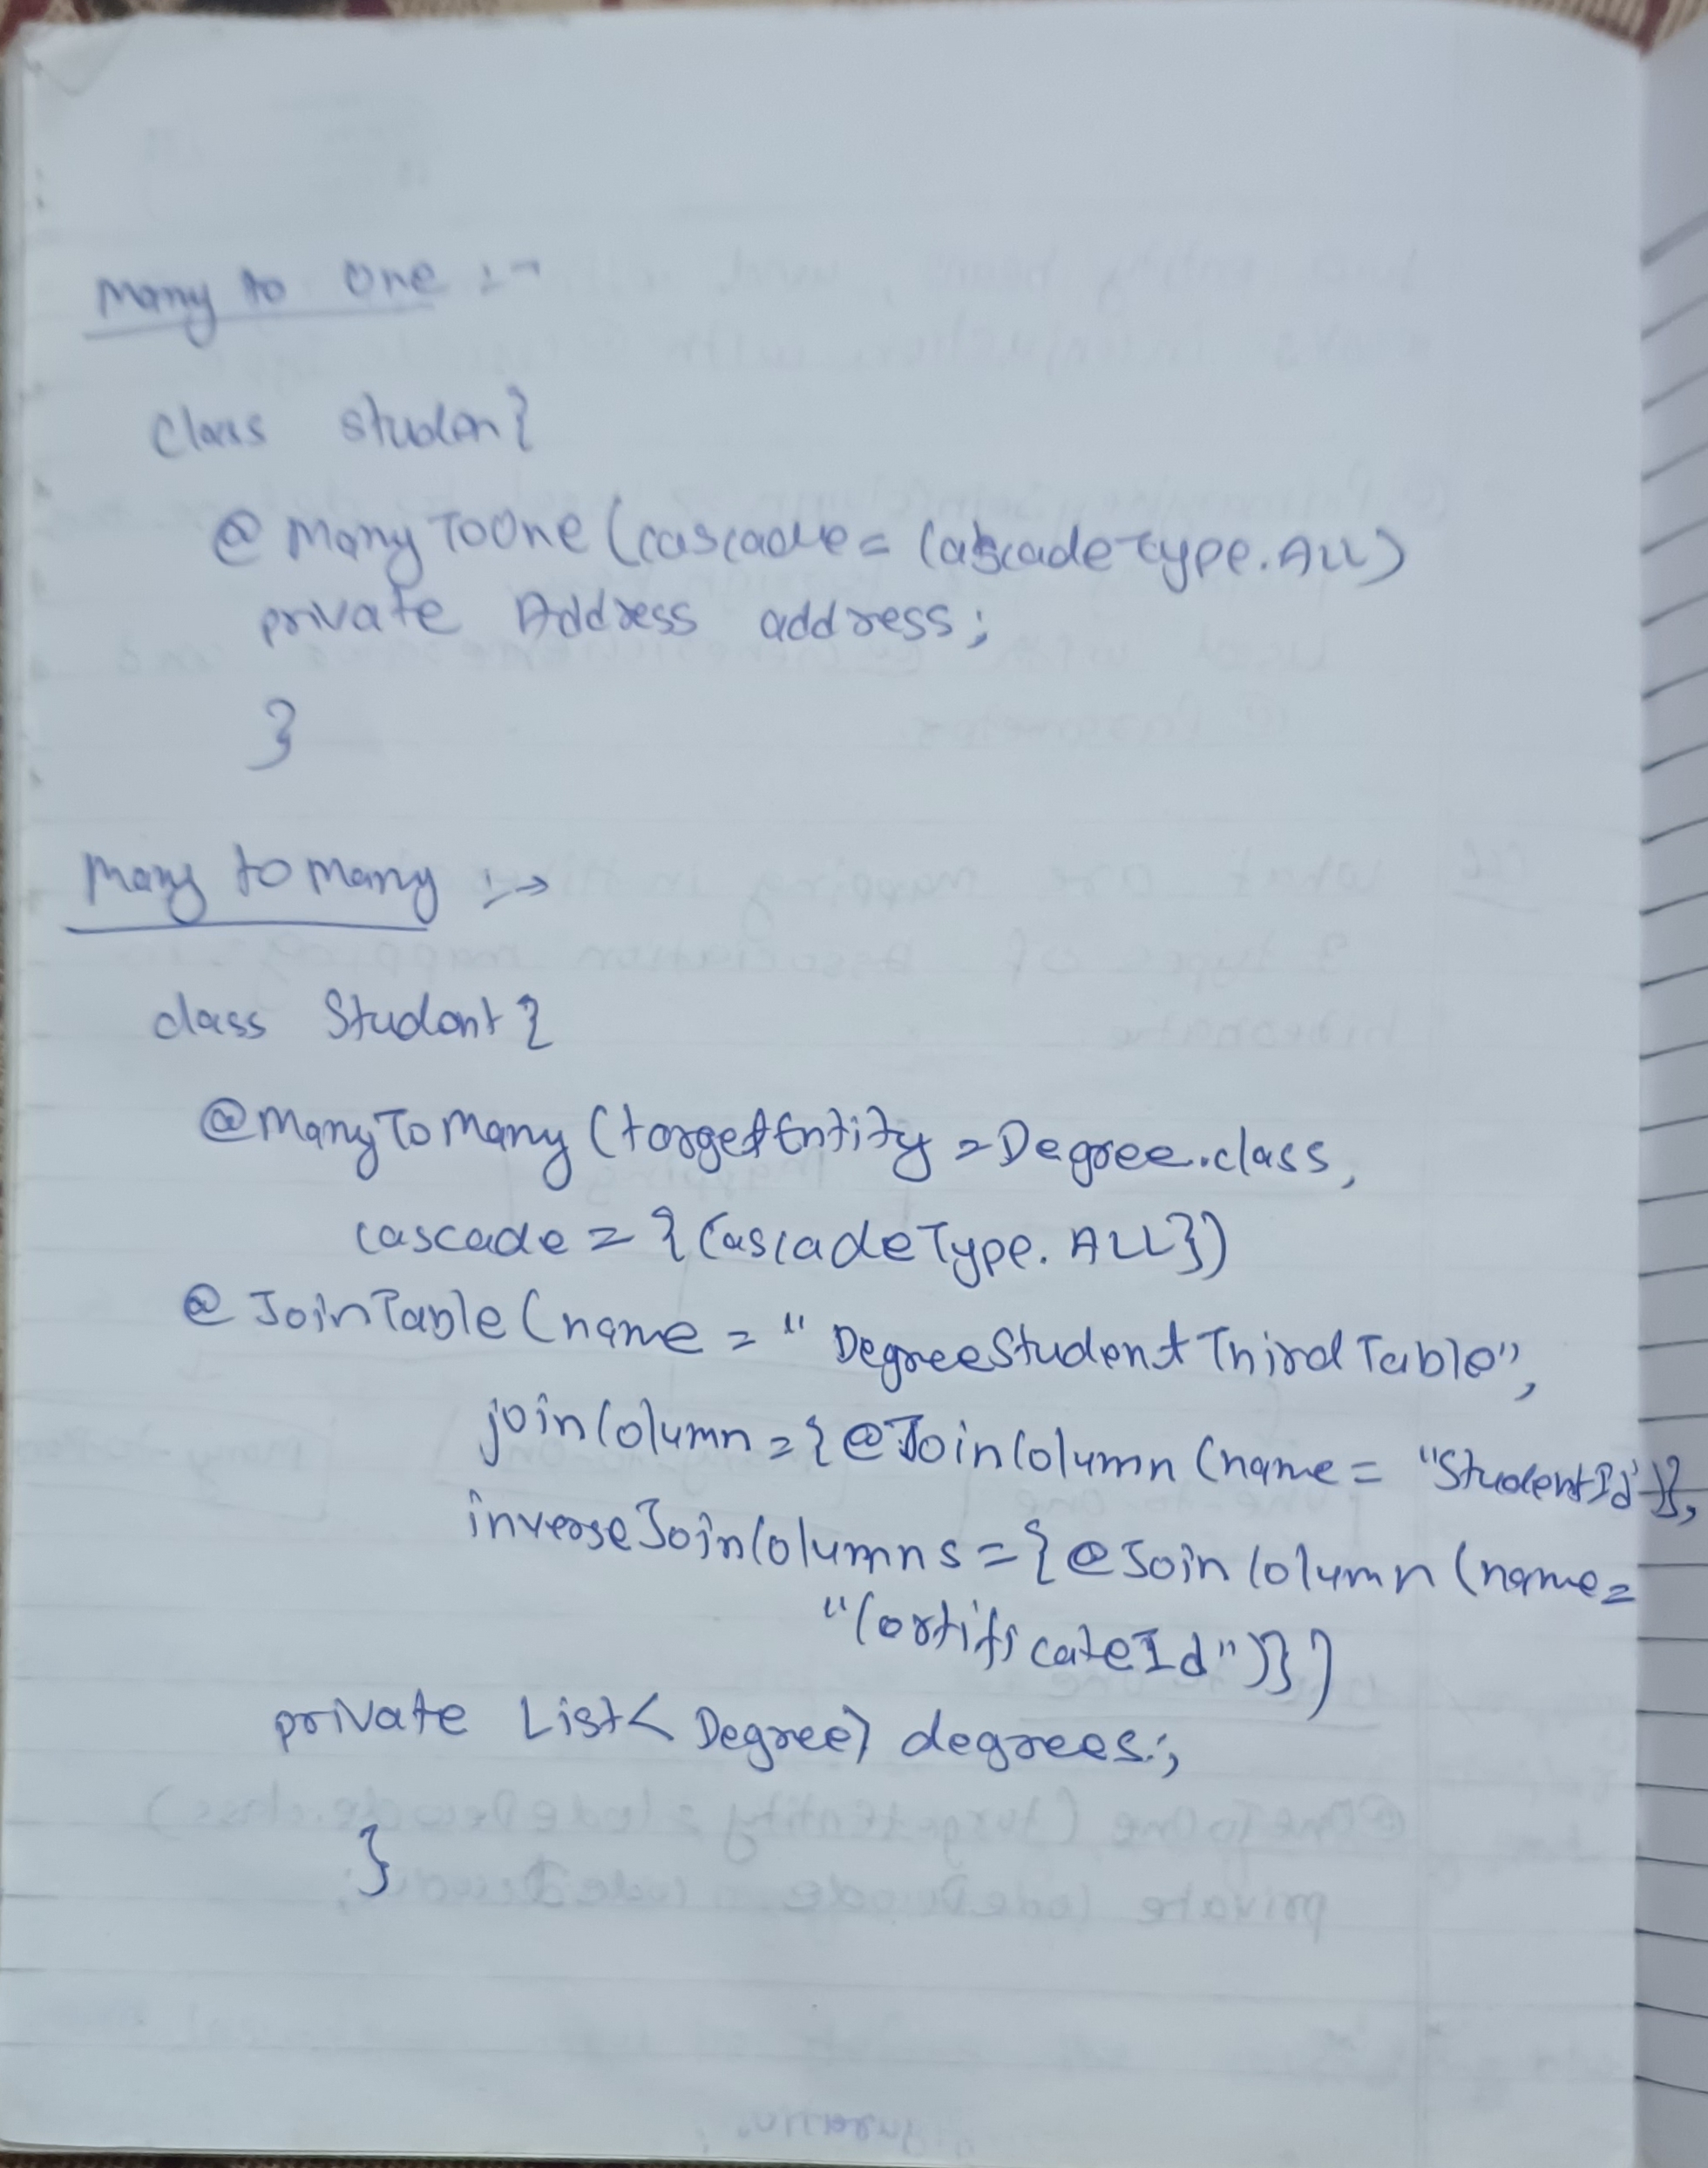 Many to one :→
class Studen{
@ManyToOne (cascade = CascadeType.ALL)
private Address address;
}
Many to many :→
class Student {
@ManyToMany (targetEntity = Degree.class,
cascade = {CascadeType.ALL})
@JoinTable (name = "DegreeStudentThirdTable",
joinColumn = {@JoinColumn (name = "StudentId")},
inverseJoinColumns = {@JoinColumn (name =
"CertificateId")})
private List<Degree> degrees;
}